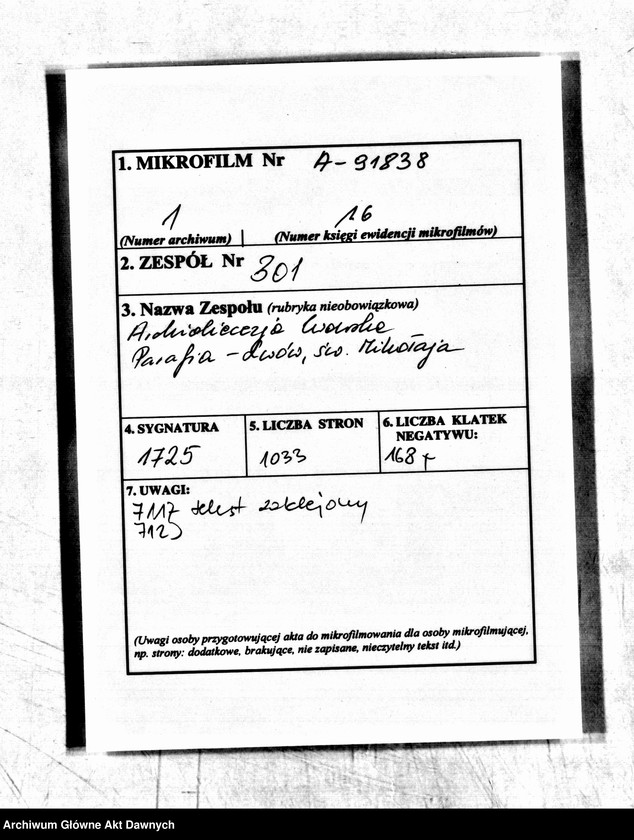 1. MIKROFILM Nr A-91838
1 16
(Numer archiwum) (Numer księgi ewidencji mikrofilmów)
2. ZESPÓŁ Nr 301
3. Nazwa Zespołu (rubryka nieobowiązkowa)
Archidiecezja lwowska
Parafia - Lwów, św. Mikołaja
4. SYGNATURA 5. LICZBA STRON 6. LICZBA KLATEK
NEGATYWU:
1725 1033 168
7. UWAGI:
tekst zaklejony
712
(Uwagi osoby przygotowującej akta do mikrofilmowania dla osoby mikrofilmującej,
np. strony: dodatkowe, brakujące, nie zapisane, nieczytelny tekst itd.)
Archiwum Główne Akt Dawnych